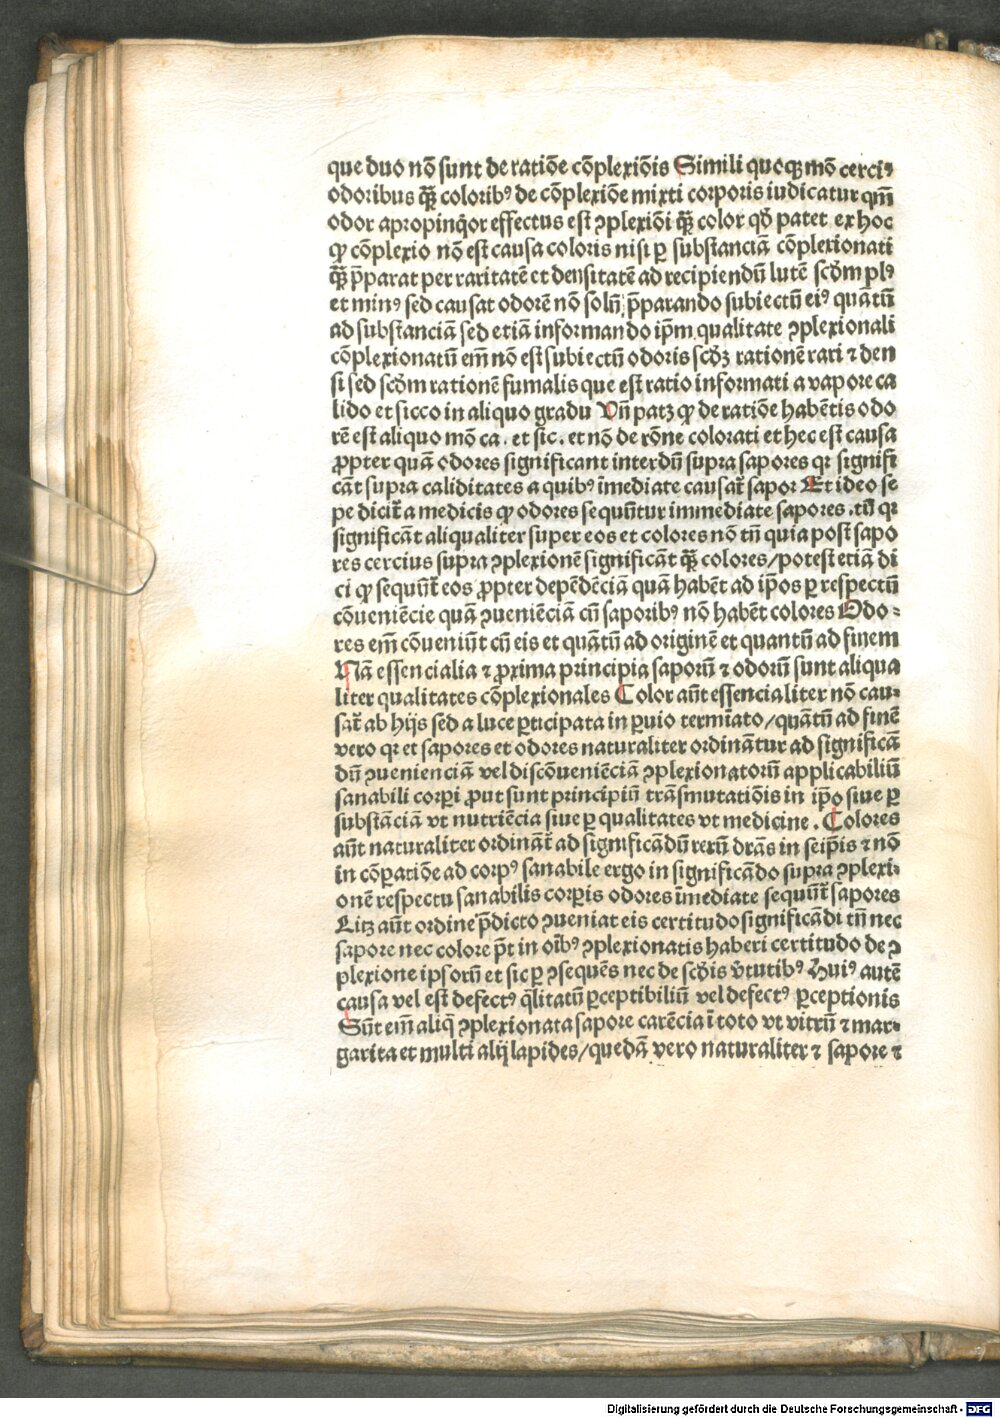 que duo nō sunt de ratiōe cōplexiōis Simili quoqꝫ mō cerciꝰ
odoribus q̄ꝫ coloribꝰ de cōplexiōe mixti corporis iudicatur qm̄
odor apropinq̊or effectus est ꝯplexiōi q̄ꝫ color qd̛ patet ex hoc
ꝙ cōplexio nō est causa coloris nisi ꝑ substanciā cōplexionati
q̄ꝫ p̄parat per raritatē et densitatē ad recipiendū lutē scd̛m plꝰ
et minꝰ sed causat odorē nō solū p̄parando subiectū eiꝰ quātū
ad substanciā sed etiā informando ip̄m qualitate ꝯplexionali
cōplexionatū em̄ nō est subiectū odoris scd̛ꝫ rationē rari ⁊ den
si sed scd̛m rationē fumalis que est ratio informati a vapore ca
lido et sicco in aliquo gradu Vn̄ patꝫ ꝙ de ratiōe habētis odo
rē est aliquo mō ca. et sic. et nō de rōne colorati et hec est causa
ꝓpter quā odores significant interdū supra sapores qꝛ signifi
cāt supra caliditates a quibꝰ īmediate causat̄ sapor Et ideo se
pe dicit̄ a medicis ꝙ odores sequūtur immediate sapores. tū qꝛ
significāt aliqualiter super eos et colores nō tn̄ quia post sapo
res cercius supra ꝯplexionē significāt q̄ꝫ colores/potest etiā di
ci ꝙ sequūt̄ eos ꝓpter depēdēciā quā habēt ad ip̄os ꝑ respectū
cōueniēcie quā ꝯueniēciā cū saporibꝰ nō habēt colores Odo⸗
res em̄ cōueniūt cū eis et quātū ad originē et quantū ad finem
Nā essencialia ⁊ ꝓxima principia saporū ⁊ odorū sunt aliqua
liter qualitates cōplexionales Color aūt essencialiter nō cau⸗
sat̄ ab hijs sed a luce ꝑticipata in ꝑuio termīato/quātū ad finē
vero qꝛ et sapores et odores naturaliter ordinātur ad significā
dū ꝯuenienciā vel discōueniēciā ꝯplexionatorū applicabiliū
sanabili corꝑi ꝓut sunt principiū trāsmutatiōis in ip̄o siue ꝑ
substāciā vt nutriēcia siue ꝑ qualitates vt medicine. Colores
aūt naturaliter ordināt̄ ad significādū rerū dr̄as in seip̄is ⁊ nō
in cōꝑatiōe ad corpꝰ sanabile ergo in significādo supra ꝯplexi⸗
onē respectu sanabilis corꝑis odores īmediate sequūt̄ sapores
Litꝫ aūt ordine p̄dicto ꝯueniat eis certitudo significādi tn̄ nec
sapore nec colore p̄t in oīb̛ꝰ ꝯplexionatis haberi certitudo de ꝯ
plexione ipsorū et sic ꝑ ꝯsequēs nec de scd̛is v̛tutibꝰ Huiꝰ autē
causa vel est defectꝰ q̄litatū ꝑceptibiliū vel defectꝰ ꝑceptionis
Sūt em̄ aliq̄ ꝯplexionata sapore carēcia ī toto vt vitrū ⁊ mar⸗
garita et multi alij lapides/quedā vero naturaliter ⁊ sapore ⁊
Digitalisierung gefördert durch die Deutsche Forschungsgemeinschaft - DFG